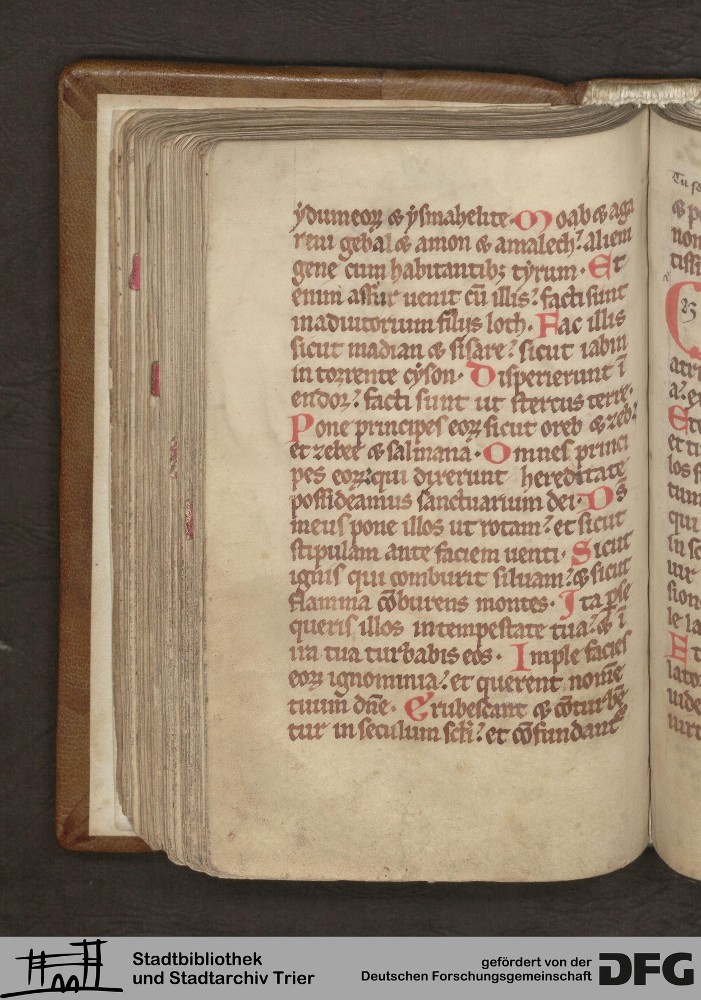 ẏdumeoꝝ & ẏsmahelite. Moab & aga
reni gebal & amon & amalech? alieni
gene cum habitantibꝫ tẏrum. Et
enim assur uenit cū illis? facti sunt
in adiutorium filijs loth. Fac illis
sicut madian & sisare? sicut iabin
in torrente cẏson. Disperierunt ī
endor? facti sunt ut stercus terre.
Pone principes eoꝝ sicut oreb & zeb?
et zebee & salmana. Omnes princi
pes eoꝝ? qui dixerunt hereditate
possideamus sanctuarium dei. Ds̄
meus pone illos ut rotam? et sicut
stipulam ante faciem uenti. Sicut
ignis qui comburit siluam? & sicut
flamma cōburens montes. Ita ꝑse
queris illos in tempestate tua? & ī
ira tua turbabis eos. Imple facies
eoꝝ ignominia? et querent nom̄e
tuum dn̄e. Erubescant & cōturbē
tur in seculum scl̄i? et cōfundant
Tu
& p
non
tissi
atri
a? e
Et
et ti
los s
tum
qui
in sc
uir
sion
le la
Et
lato
uide
uirt
Stadtbibliothek
und Stadtarchiv Trier
gefördert von der
Deutschen Forschungsgemeinschaft
DFG